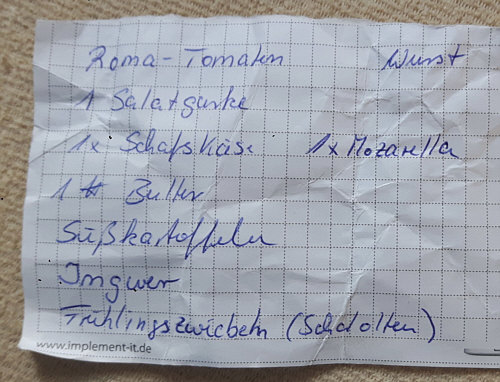 Roma-Tomaten Wurst
1 Salatgurke
1x Schafskäse 1x Mozarella
1 Butter
Süßkartoffeln
Ingwer
Frühlingszwiebeln (Schalotten)
www.implement-it.de